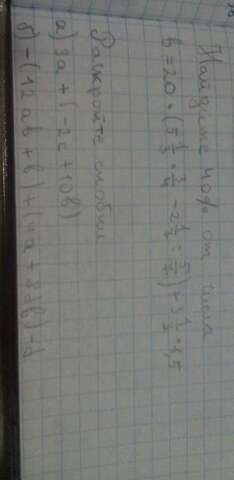 Найдите 40% от числа
b = 20 · (5 1/3 · 3/4 - 2 1/2 : 5/7) + 3 1/3 · 1,5
Раскройте скобки
а) 3a + (-2c + 10b)
б) -(12ab + b) + (4a + 32b) -